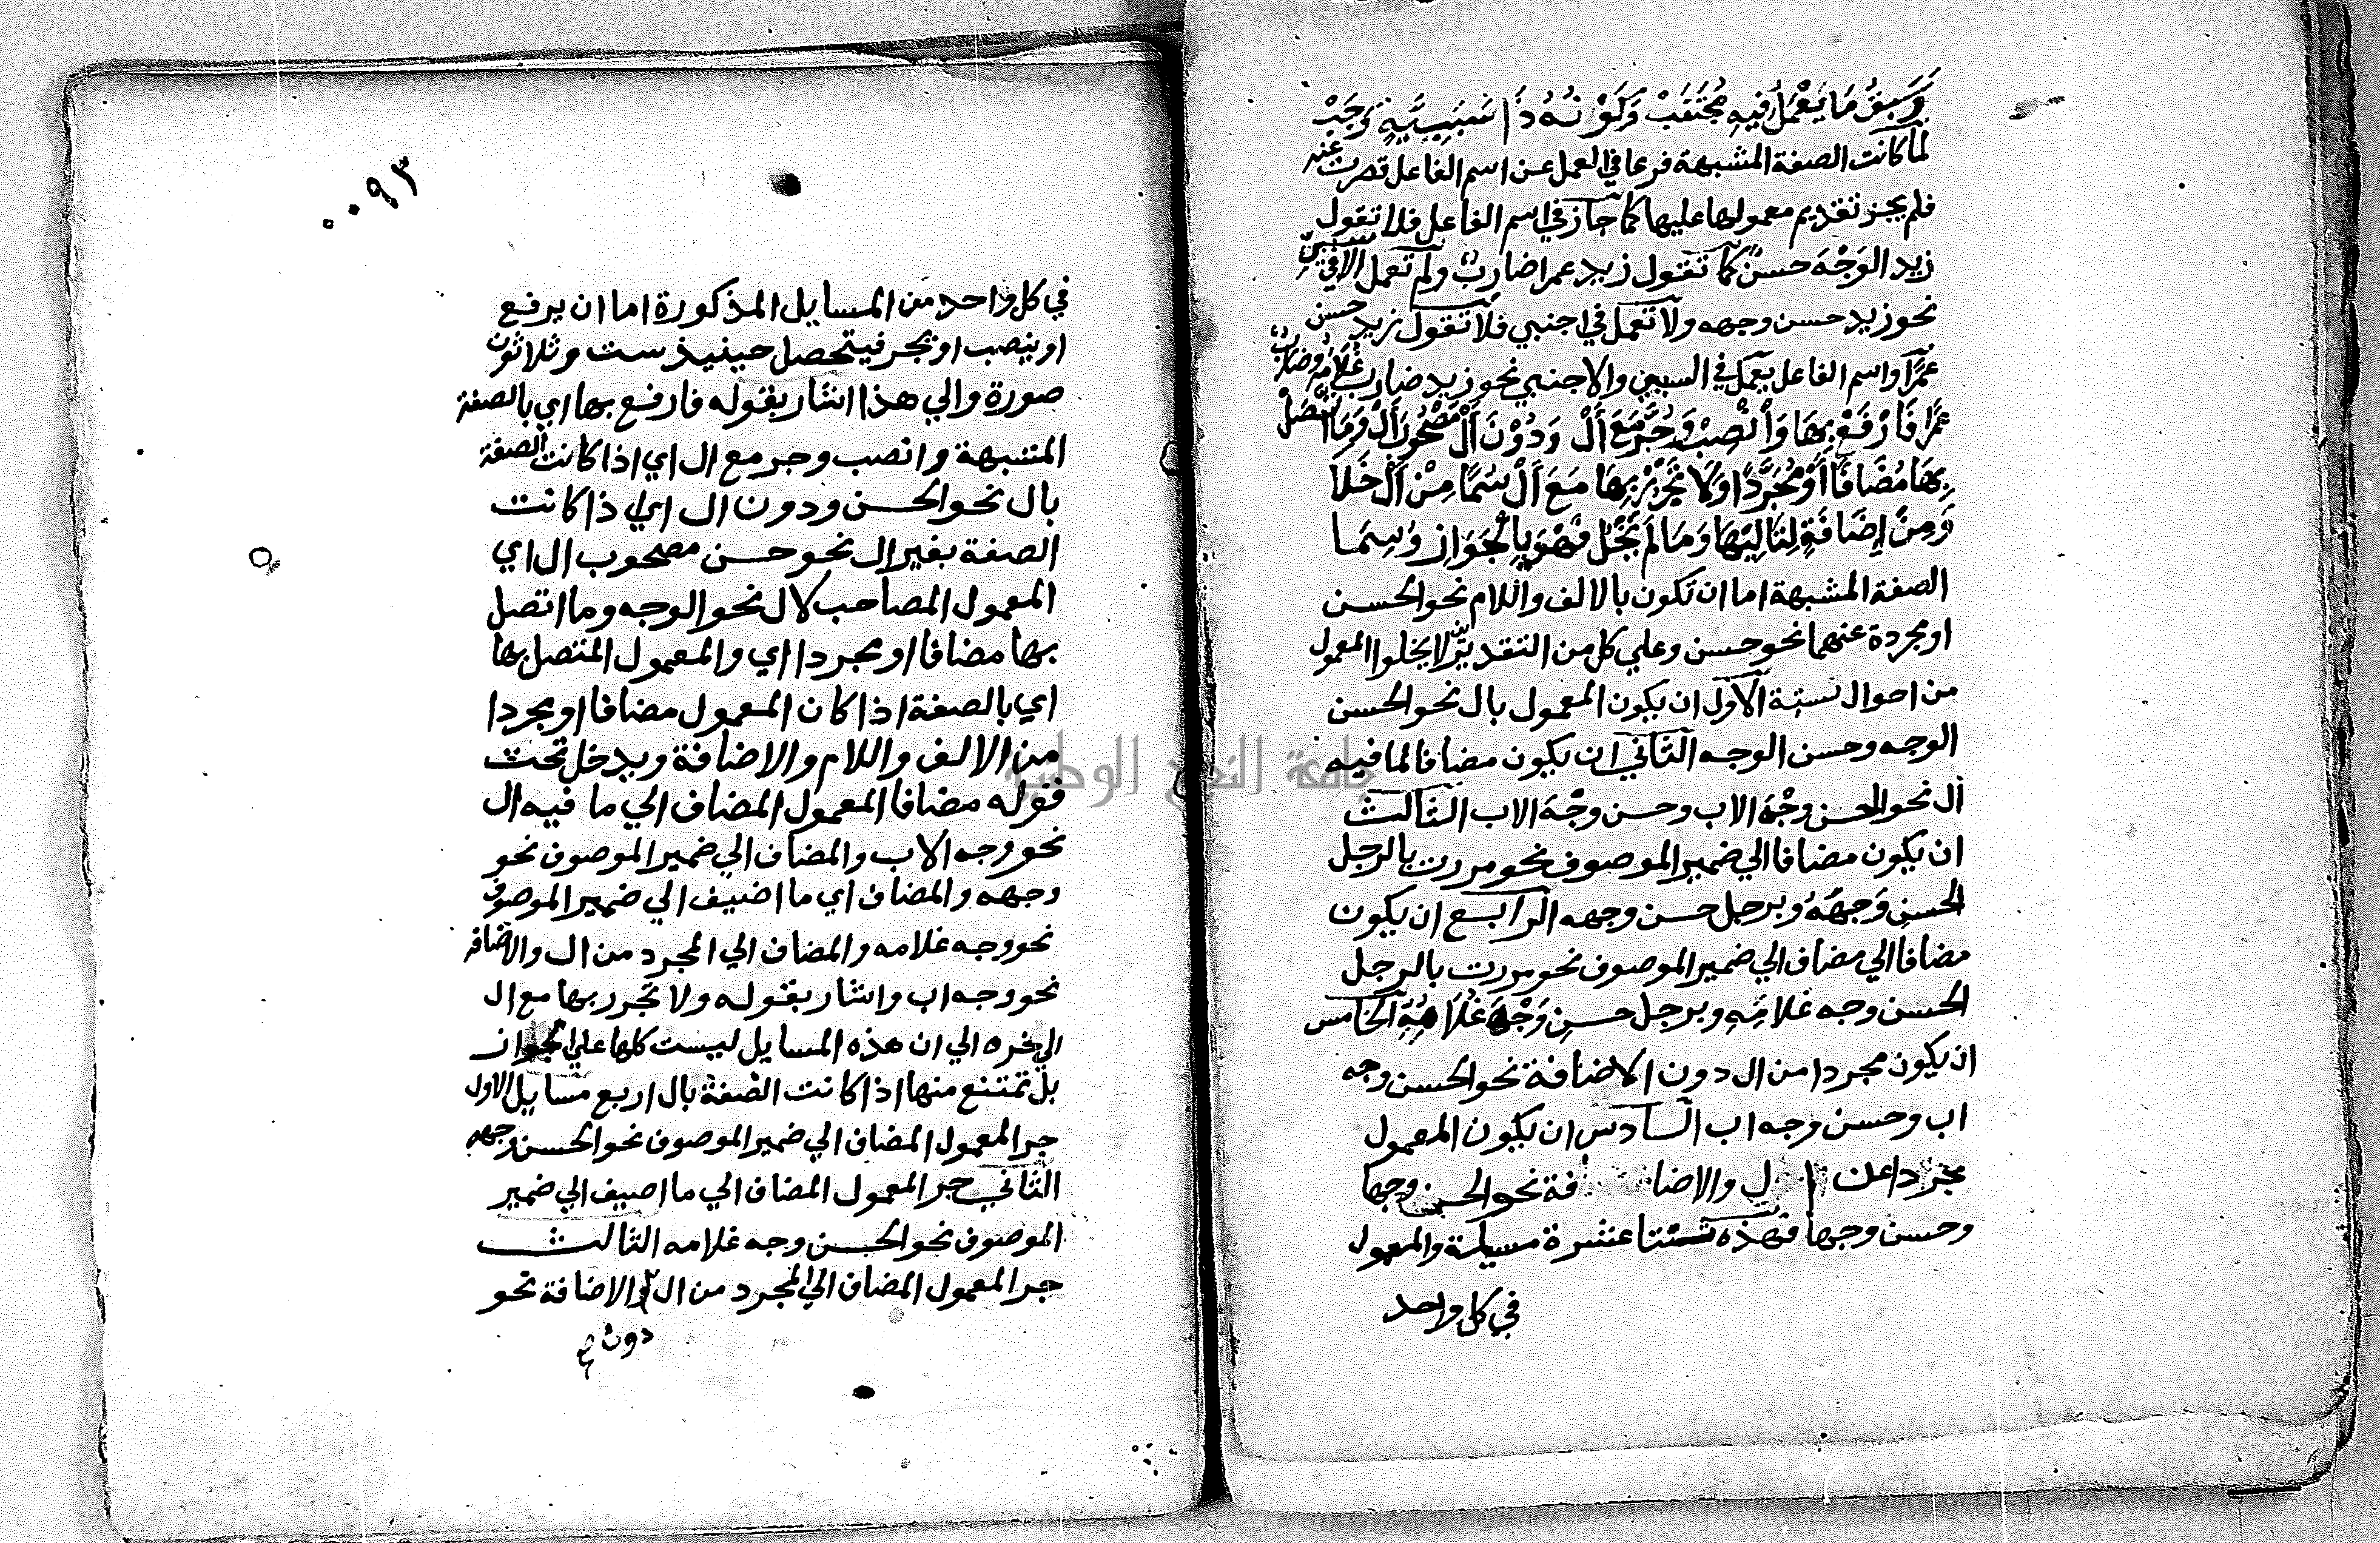 وَسَبْقُ مَا تَعْمَلُ فِيهِ مُجْتَنَبْ وَكَوْنُهُ ذَا سَبَبِيَّةٍ وَجَبْ
لما كانت الصفة المشبهة فرعا في العمل عن اسم الفاعل قصرت عنه
فلم يجز تقديم معمولها عليها كما جاز في اسم الفاعل فلا تقول
زيد الوَجْهَ حسنٌ كما تقول زيد عمرا ضاربٌ ولم تعمل الا في سببيّ
نحو زيد حسن وجهه ولا تعمل في اجنبي فلا تقول زيد حسن
عمرًا واسم الفاعل يعمل في السببي والاجنبي نحو زيد ضارب غلامه وضارب
عمرا فَارْفَعْ بِهَا وَانْصِبْ وَجُرَّ مَعَ أَلْ وَدُوْنَ أَلْ مَصْحُوبَ أَلْ وَمَا اتَّصَلْ
بِهَا مُضَافًا أَوْ مُجَرَّدًا وَلَا تَجْرُرْ بِهَا مَعَ أَلْ سُمًا مِنْ أَلْ خَلَا
وَمِنْ إِضَافَةٍ لِتَالِيْهَا وَمَا لَمْ يَخْلُ فَهْوَ بِالْجَوَازِ وُسِمَا
الصفة المشبهة اما ان تكون بالالف واللام نحو الحسن
او مجردة عنهما نحو حسن وعلي كل من التقديرين لا يخلوا المعمول
من احوال ستة الاول ان يكون المعمول بال نحو الحسن
الوجه وحسن الوجه الثاني ان يكون مضافا لما فيه
ال نحو الحسن وجْهَ الاب وحسن وجْهَ الاب الثالث
ان يكون مضافا الي ضمير الموصوف نحو مررت بالرجل
الحسنِ وَجهَهُ وبرجل حسن وجهه الرابع ان يكون
مضافا الي مضاف الي ضمير الموصوف نحو مررت بالرجل
الحسن وجه غلامِهِ وبرجل حسنٍ وَجْهَ غُلَامِهِ الخامس
ان يكون مجردا من ال دون الاضافة نحو الحسن وجه
اب وحسن وجه اب السادس ان يكون المعمول
مجردا عن ال والاضافة نحو الحسن وجها
وحسن وجها فهذه ثنتا عشرة مسيلة والمعمول
في كل واحد
٠٠٩٣
في كل واحد من المسايل المذكورة اما ان يرفع
او ينصب او يجر فيتحصل حينيذ ست وثلاثون
صورة والي هذا اشار بقوله فارفع بها اي بالصفة
المشبهة وانصب وجر مع ال اي اذا كانت الصفة
بال نحو الحسن ودون ال اي اذا كانت
الصفة بغير ال نحو حسن مصحوب ال اي
المعمول المصاحب لال نحو الوجه وما اتصل
بها مضافا او مجردا اي والمعمول المتصل بها
اي بالصفة اذا كان المعمول مضافا او مجردا
من الالف واللام والاضافة ويدخل تحت
قوله مضافا المعمول المضاف الي ما فيه ال
نحو وجه الاب والمضاف الي ضمير الموصوف نحو
وجهه والمضاف اي ما اضيف الي ضمير الموصوف
نحو وجه غلامه والمضاف الي المجرد من ال والاضافه
نحو وجه اب واشار بقوله ولا تجرر بها مع ال
الي اخره الي ان هذه المسايل ليست كلها علي الجواز
بل تمتنع منها اذا كانت الصفة بال اربع مسايل الاول
جر المعمول المضاف الي ضمير الموصوف نحو الحسن وجهه
الثاني جر المعمول المضاف الي ما اضيف الي ضمير
الموصوف نحو الحسن وجه غلامه الثالث
جر المعمول المضاف الي المجرد من ال والاضافة نحو
دون
جامعة النجاح الوطنية